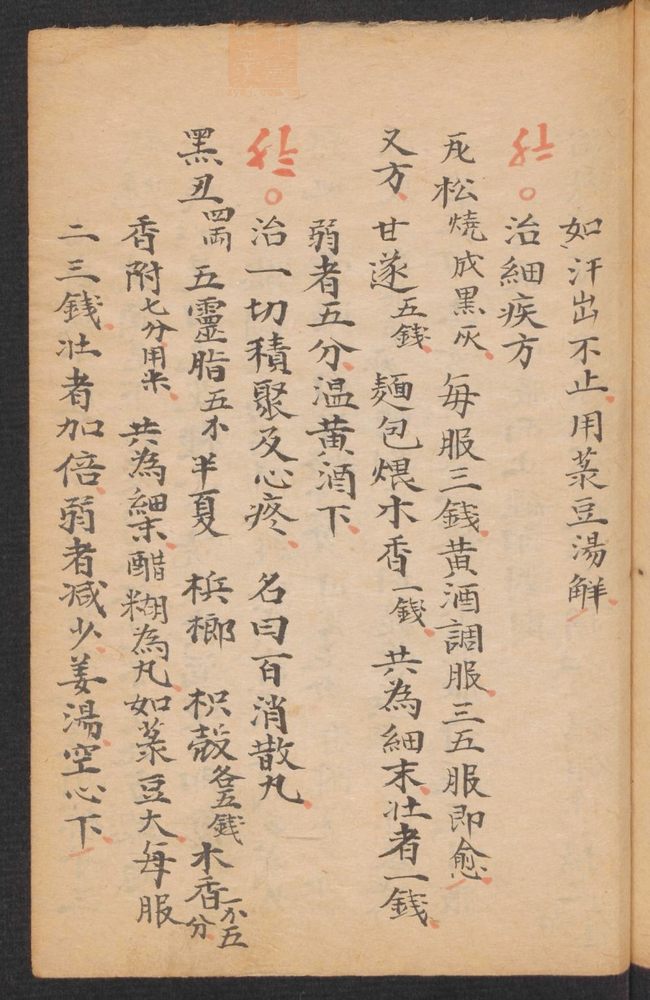 如汗出不止用菉豆湯解
治細疾方
瓦松燒成黑灰 每服三錢黄酒調服三五服即愈
又方 甘遂五錢 麺包煨木香一錢 共為細末壮者一錢
弱者五分温黄酒下
治一切積聚及心疼 名曰百消散丸
黑丑四両 五靈脂五 半夏 梹榔 枳殼各五錢 木香 五分
香附七分用米 共為細末醋糊為丸如菉豆大每服
二三錢壮者加倍弱者减少姜湯空心下